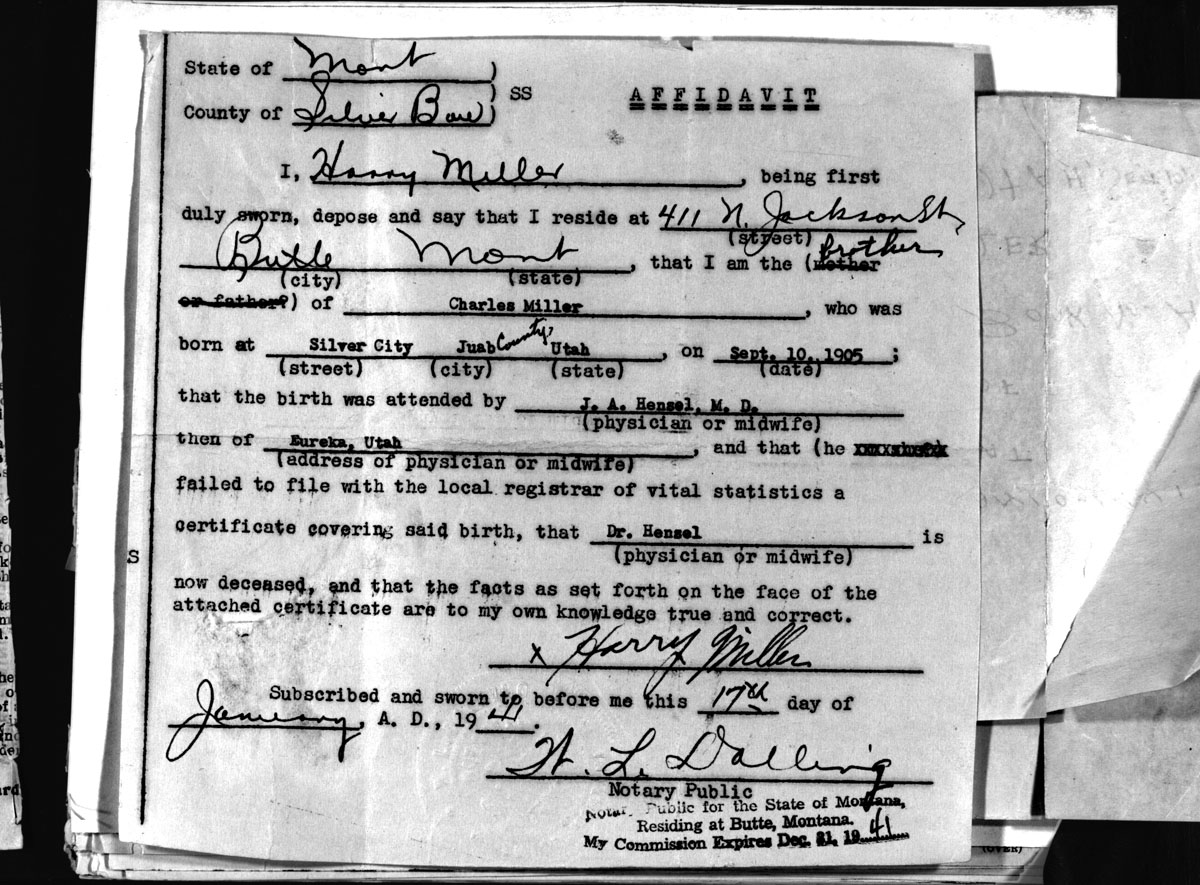 State of Mont )
) SS
County of Silver Bow )
AFFIDAVIT
I, Harry Miller, being first
duly sworn, depose and say that I reside at 411 N. Jackson St,
(street) brother
Butte Mont, that I am the (mother
(city) (state)
or father?) of Charles Miller, who was
born at Silver City Juab County, Utah, on Sept. 10, 1905;
(street) (city) (state) (date)
that the birth was attended by J. A. Hensel, M. D.
(physician or midwife)
then of Eureka, Utah, and that (he
(address of physician or midwife)
failed to file with the local registrar of vital statistics a
certificate covering said birth, that Dr. Hensel is
(physician or midwife)
now deceased, and that the facts as set forth on the face of the
attached certificate are to my own knowledge true and correct.
x Harry Miller
Subscribed and sworn to before me this 17th day of
January, A. D., 1941.
W. L. Dalling
Notary Public
Notary Public for the State of Montana,
Residing at Butte, Montana.
My Commission Expires Dec. 21, 1941
S
(OVER)